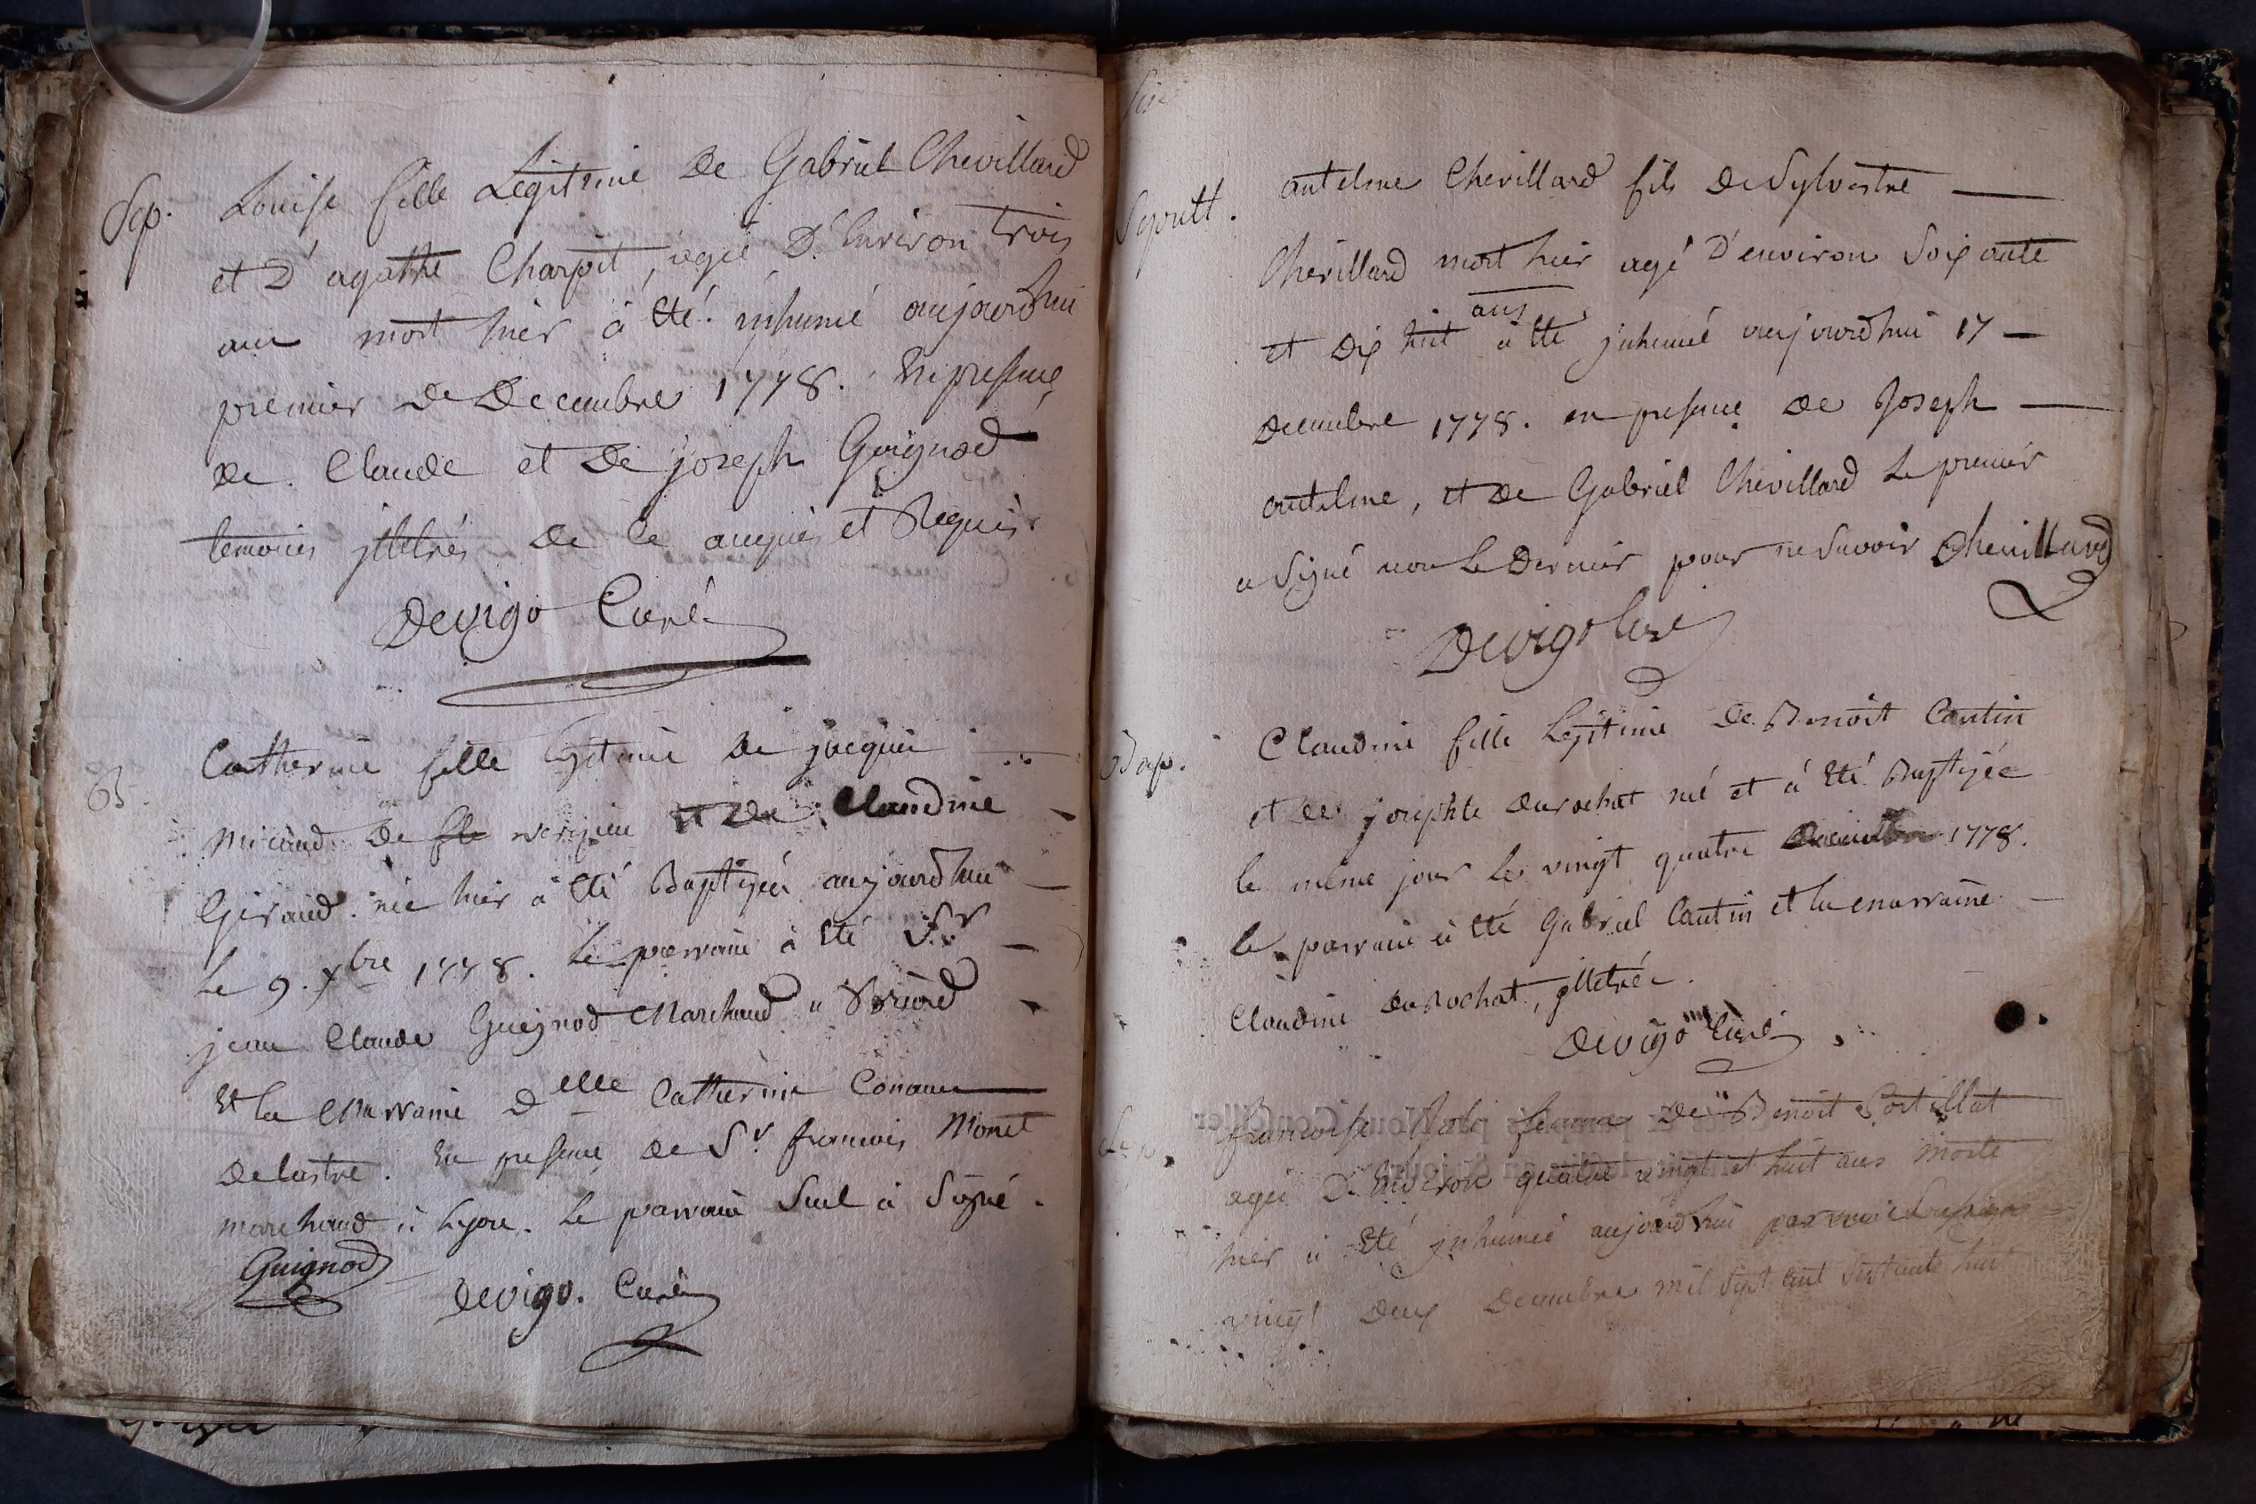 Sep. Louise fille Legitime De Gabriel Chevillard
et D'agathe Charpit, agée D'Environ trois
ans mort hier à été inhumé aujourdhui
premier De Decembre 1778. En presence
de Claude et De joseph Guignod
temoins jlletrés De ce enquis et Requis.
Devigo Curé
B. Catherine fille legitime De jacques
Micaud De virieu et De Claudine
Giraud née hier à été Baptizée aujourdhui
Le 9. Xbre 1778. Le parrain à été Sr
jean Claude Guignod Marchand a
Et la Marraine Delle Catherine
Delastre. En presence de Sr. francois Monet
marchand à Lyon. Le parrain Seul à Signé.
Guignod
Devigo. Curé
Sepult. antelme Chevillard fils De Sylvestre
Chevillard mort hier agé D'environ Soixante
ans
et Dix huit à été jnhumé aujourdhui 17
Decembre 1778. en presence De Joseph
antelme, et De Gabriel Chevillard Le premier
a Signé non Le Dernier pour ne Savoir Chevillard
Devigo Curé
Bap. Claudine fille Legitime De Benoit Cantin
et De josephte Durochat né et à été Baptizée
le même jour Le vingt quatre Decembre 1778.
le parrain à été Gabriel Cantin et la marraine
Claudine Du Rochat, jlletrée.
Devigo Curé
Sep. francoise femme De Benoit Portillat
agée D'Environ quatre vingt et huit ans morte
hier à été jnhumée aujourdhui par moi
vingt Deux Decembre mil Sept cent Septante huit